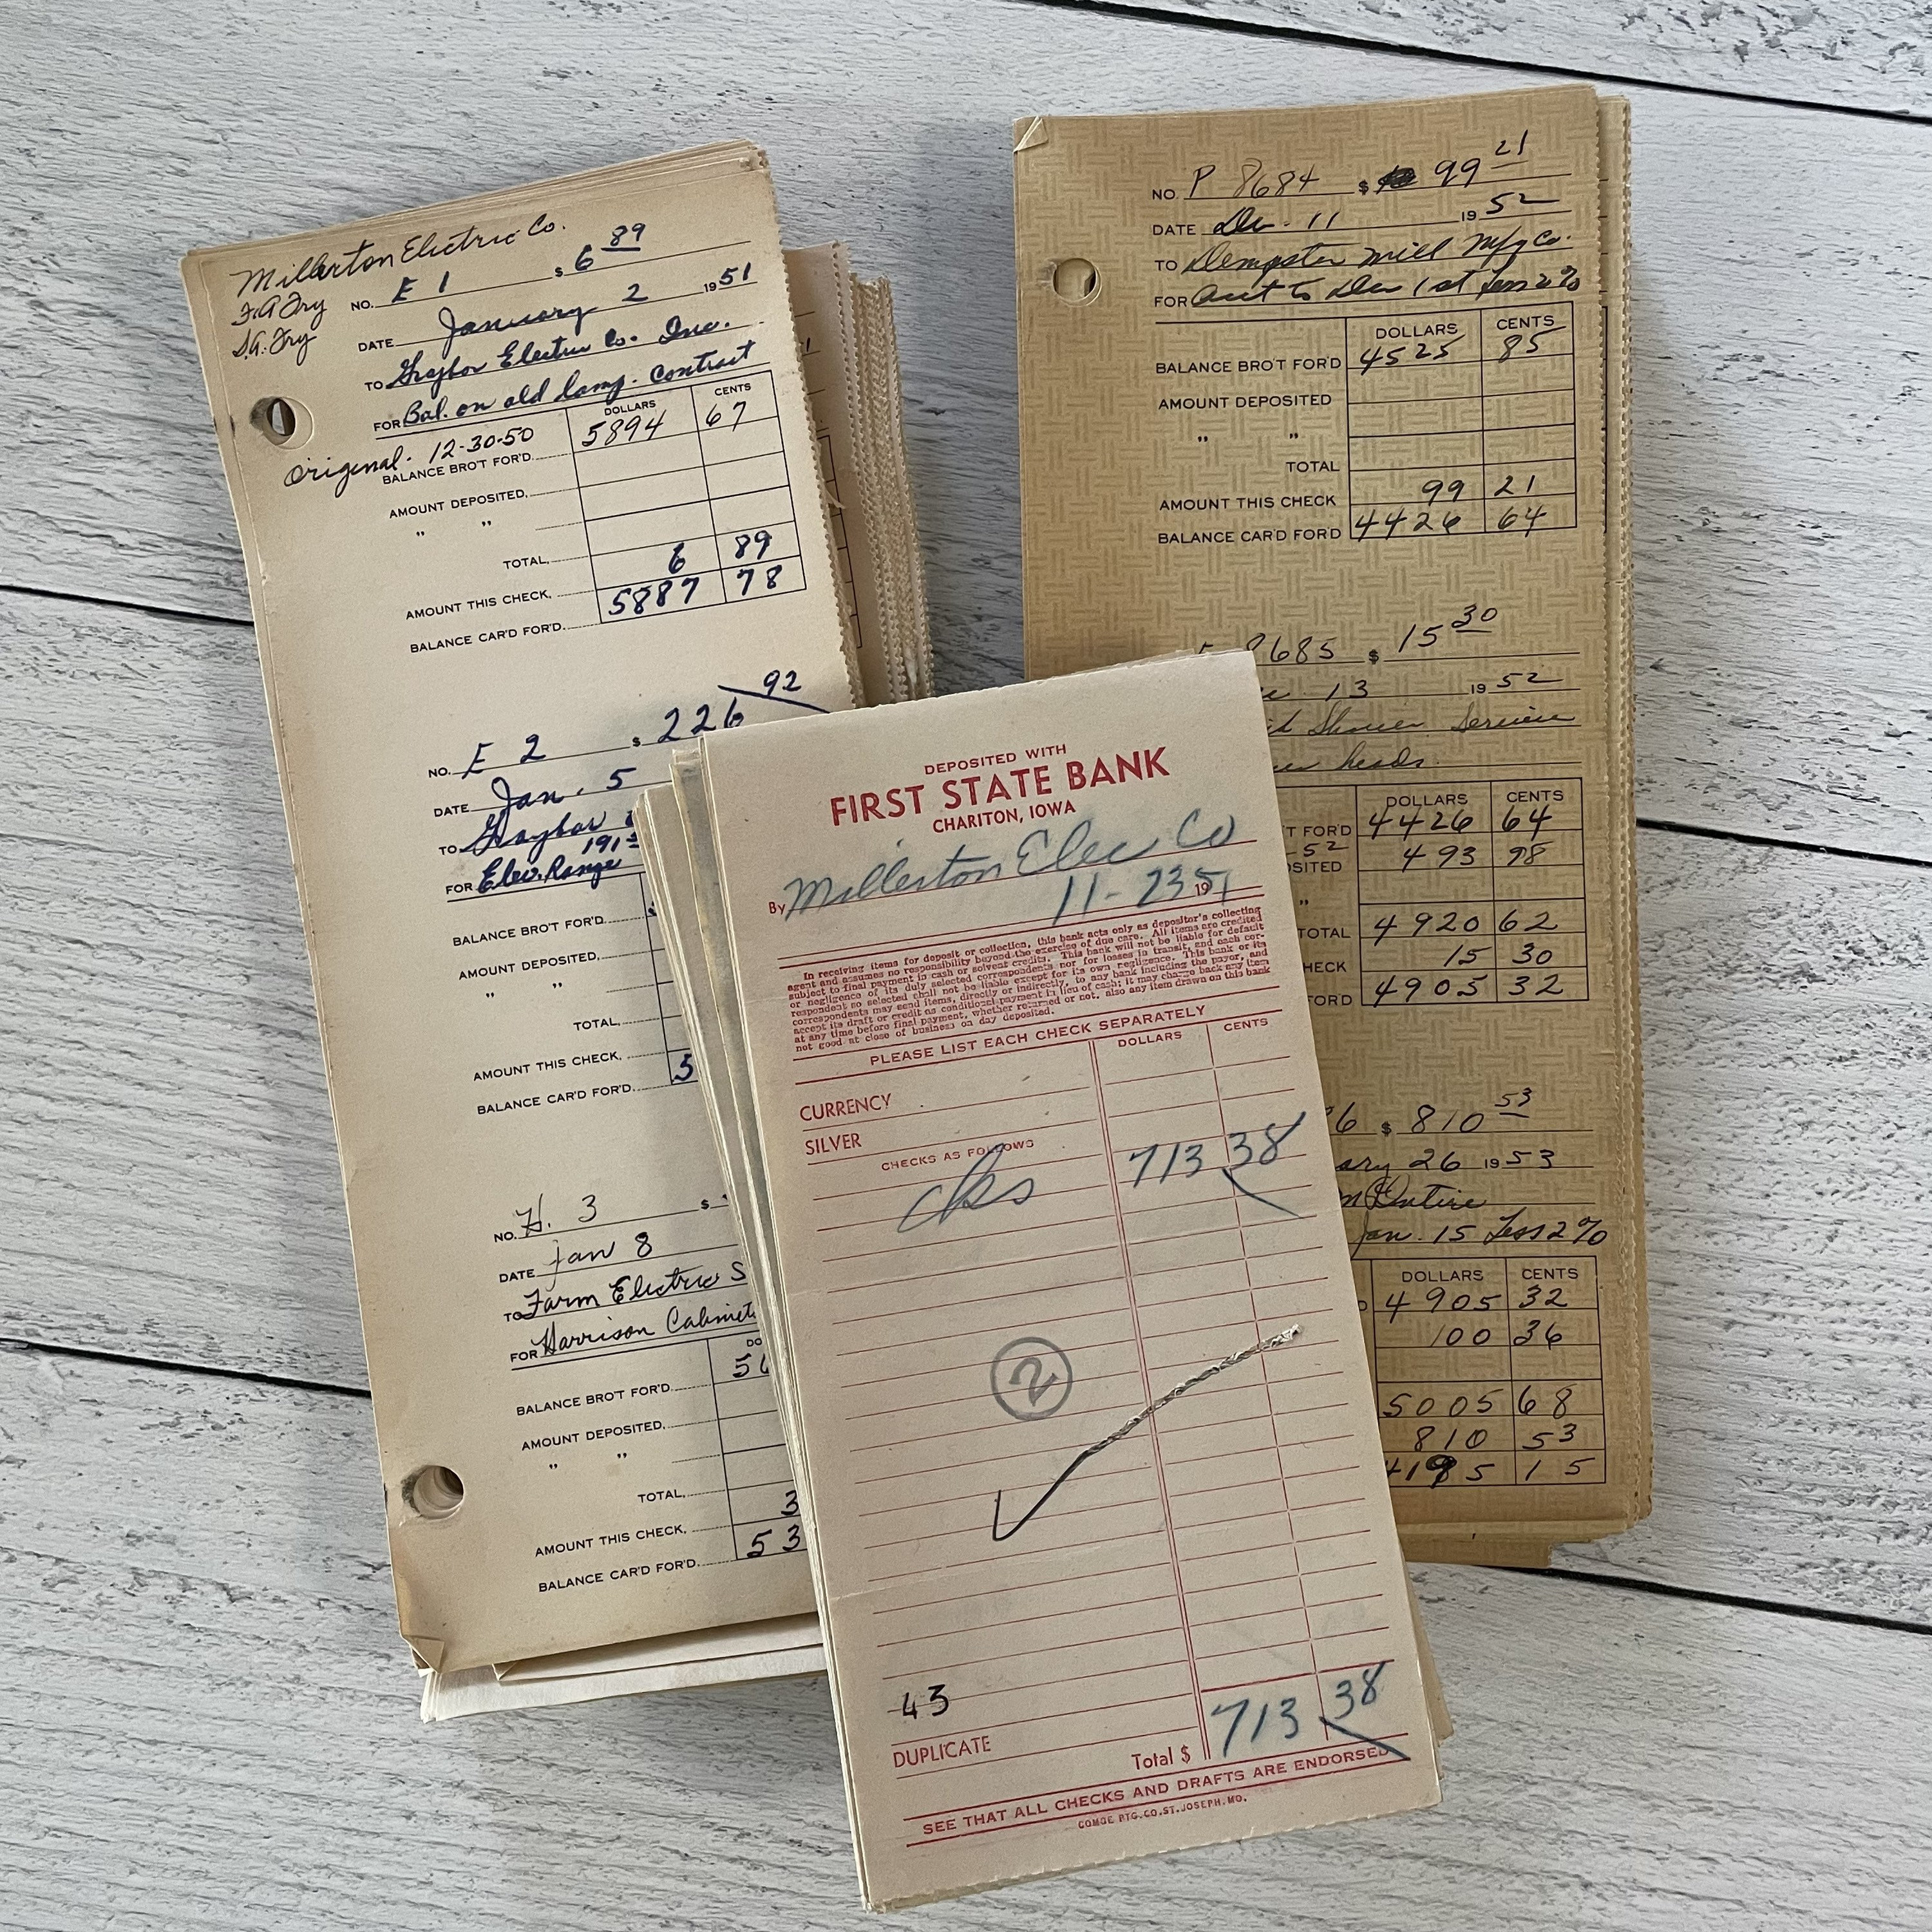 Millerton Electric Co.
F.A. Fry
S.A. Fry
NO. E 1 $ 6 89
DATE January 2 1951
TO Graybar Electric Co. Inc.
FOR Bal. on old lamp. contract
DOLLARS CENTS
original. 12-30-50
BALANCE BRO'T FOR'D. 5894 67
AMOUNT DEPOSITED,
" "
TOTAL,
AMOUNT THIS CHECK, 6 89
BALANCE CAR'D FOR'D. 5887 78
NO. E 2 $ 226 92
DATE Jan. 5
TO Graybar
191
FOR Elec. Range
BALANCE BRO'T FOR'D.
AMOUNT DEPOSITED,
" "
TOTAL,
AMOUNT THIS CHECK,
BALANCE CAR'D FOR'D. 5
NO. H. 3 $
DATE Jan 8
TO Farm Electric S
FOR Harrison Cabinet
DO
BALANCE BRO'T FOR'D. 56
AMOUNT DEPOSITED,
" "
TOTAL,
AMOUNT THIS CHECK, 3
BALANCE CAR'D FOR'D. 53
NO. P 8684 $ 99 21
DATE Dec. 11 1952
TO Dempster Mill Mfg Co.
FOR Acct to Dec 1st Less 2%
DOLLARS CENTS
BALANCE BRO'T FOR'D 4525 85
AMOUNT DEPOSITED
" "
TOTAL
AMOUNT THIS CHECK 99 21
BALANCE CAR'D FOR'D 4426 64
8685 $ 15 30
13 1952
Shower Service
heads.
DOLLARS CENTS
T FOR'D 4426 64
52
SITED 493 98
"
TOTAL 4920 62
HECK 15 30
FORD 4905 32
6 $ 810 53
ary 26 1953
Jan. 15 Less 2%
DOLLARS CENTS
D 4905 32
100 36
5005 68
810 53
4195 15
DEPOSITED WITH
FIRST STATE BANK
CHARITON, IOWA
By Millerton Elec Co
11-23 1951
In receiving items for deposit or collection, this bank acts only as depositor's collecting
agent and assumes no responsibility beyond the exercise of due care. All items are credited
subject to final payment in cash or solvent credits. This bank will not be liable for default
or negligence of its duly selected correspondents nor for losses in transit, and each cor-
respondent so selected shall not be liable except for its own negligence. This bank or its
correspondents may send items, directly or indirectly, to any bank including the payor, and
accept its draft or credit as conditional payment in lieu of cash; it may charge back any item
at any time before final payment, whether returned or not, also any item drawn on this bank
not good at close of business on day deposited.
PLEASE LIST EACH CHECK SEPARATELY
DOLLARS CENTS
CURRENCY
SILVER
CHECKS AS FOLLOWS
cks 713 38
2
43
DUPLICATE
Total $ 713 38
SEE THAT ALL CHECKS AND DRAFTS ARE ENDORSED
COMBE PTG. CO. ST. JOSEPH, MO.